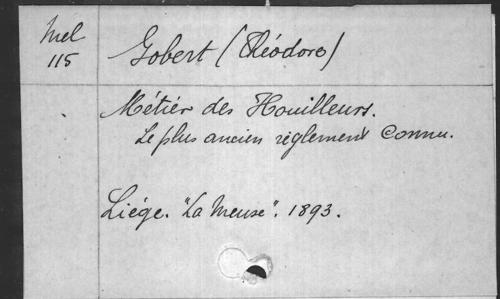 Mel
115
Gobert (Théodore)
Métier des Houilleurs.
Le plus ancien règlement Connu.
Liége. "La Meuse". 1893.